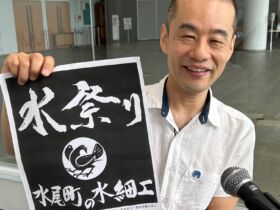 水祭り
水尾町
の水細工